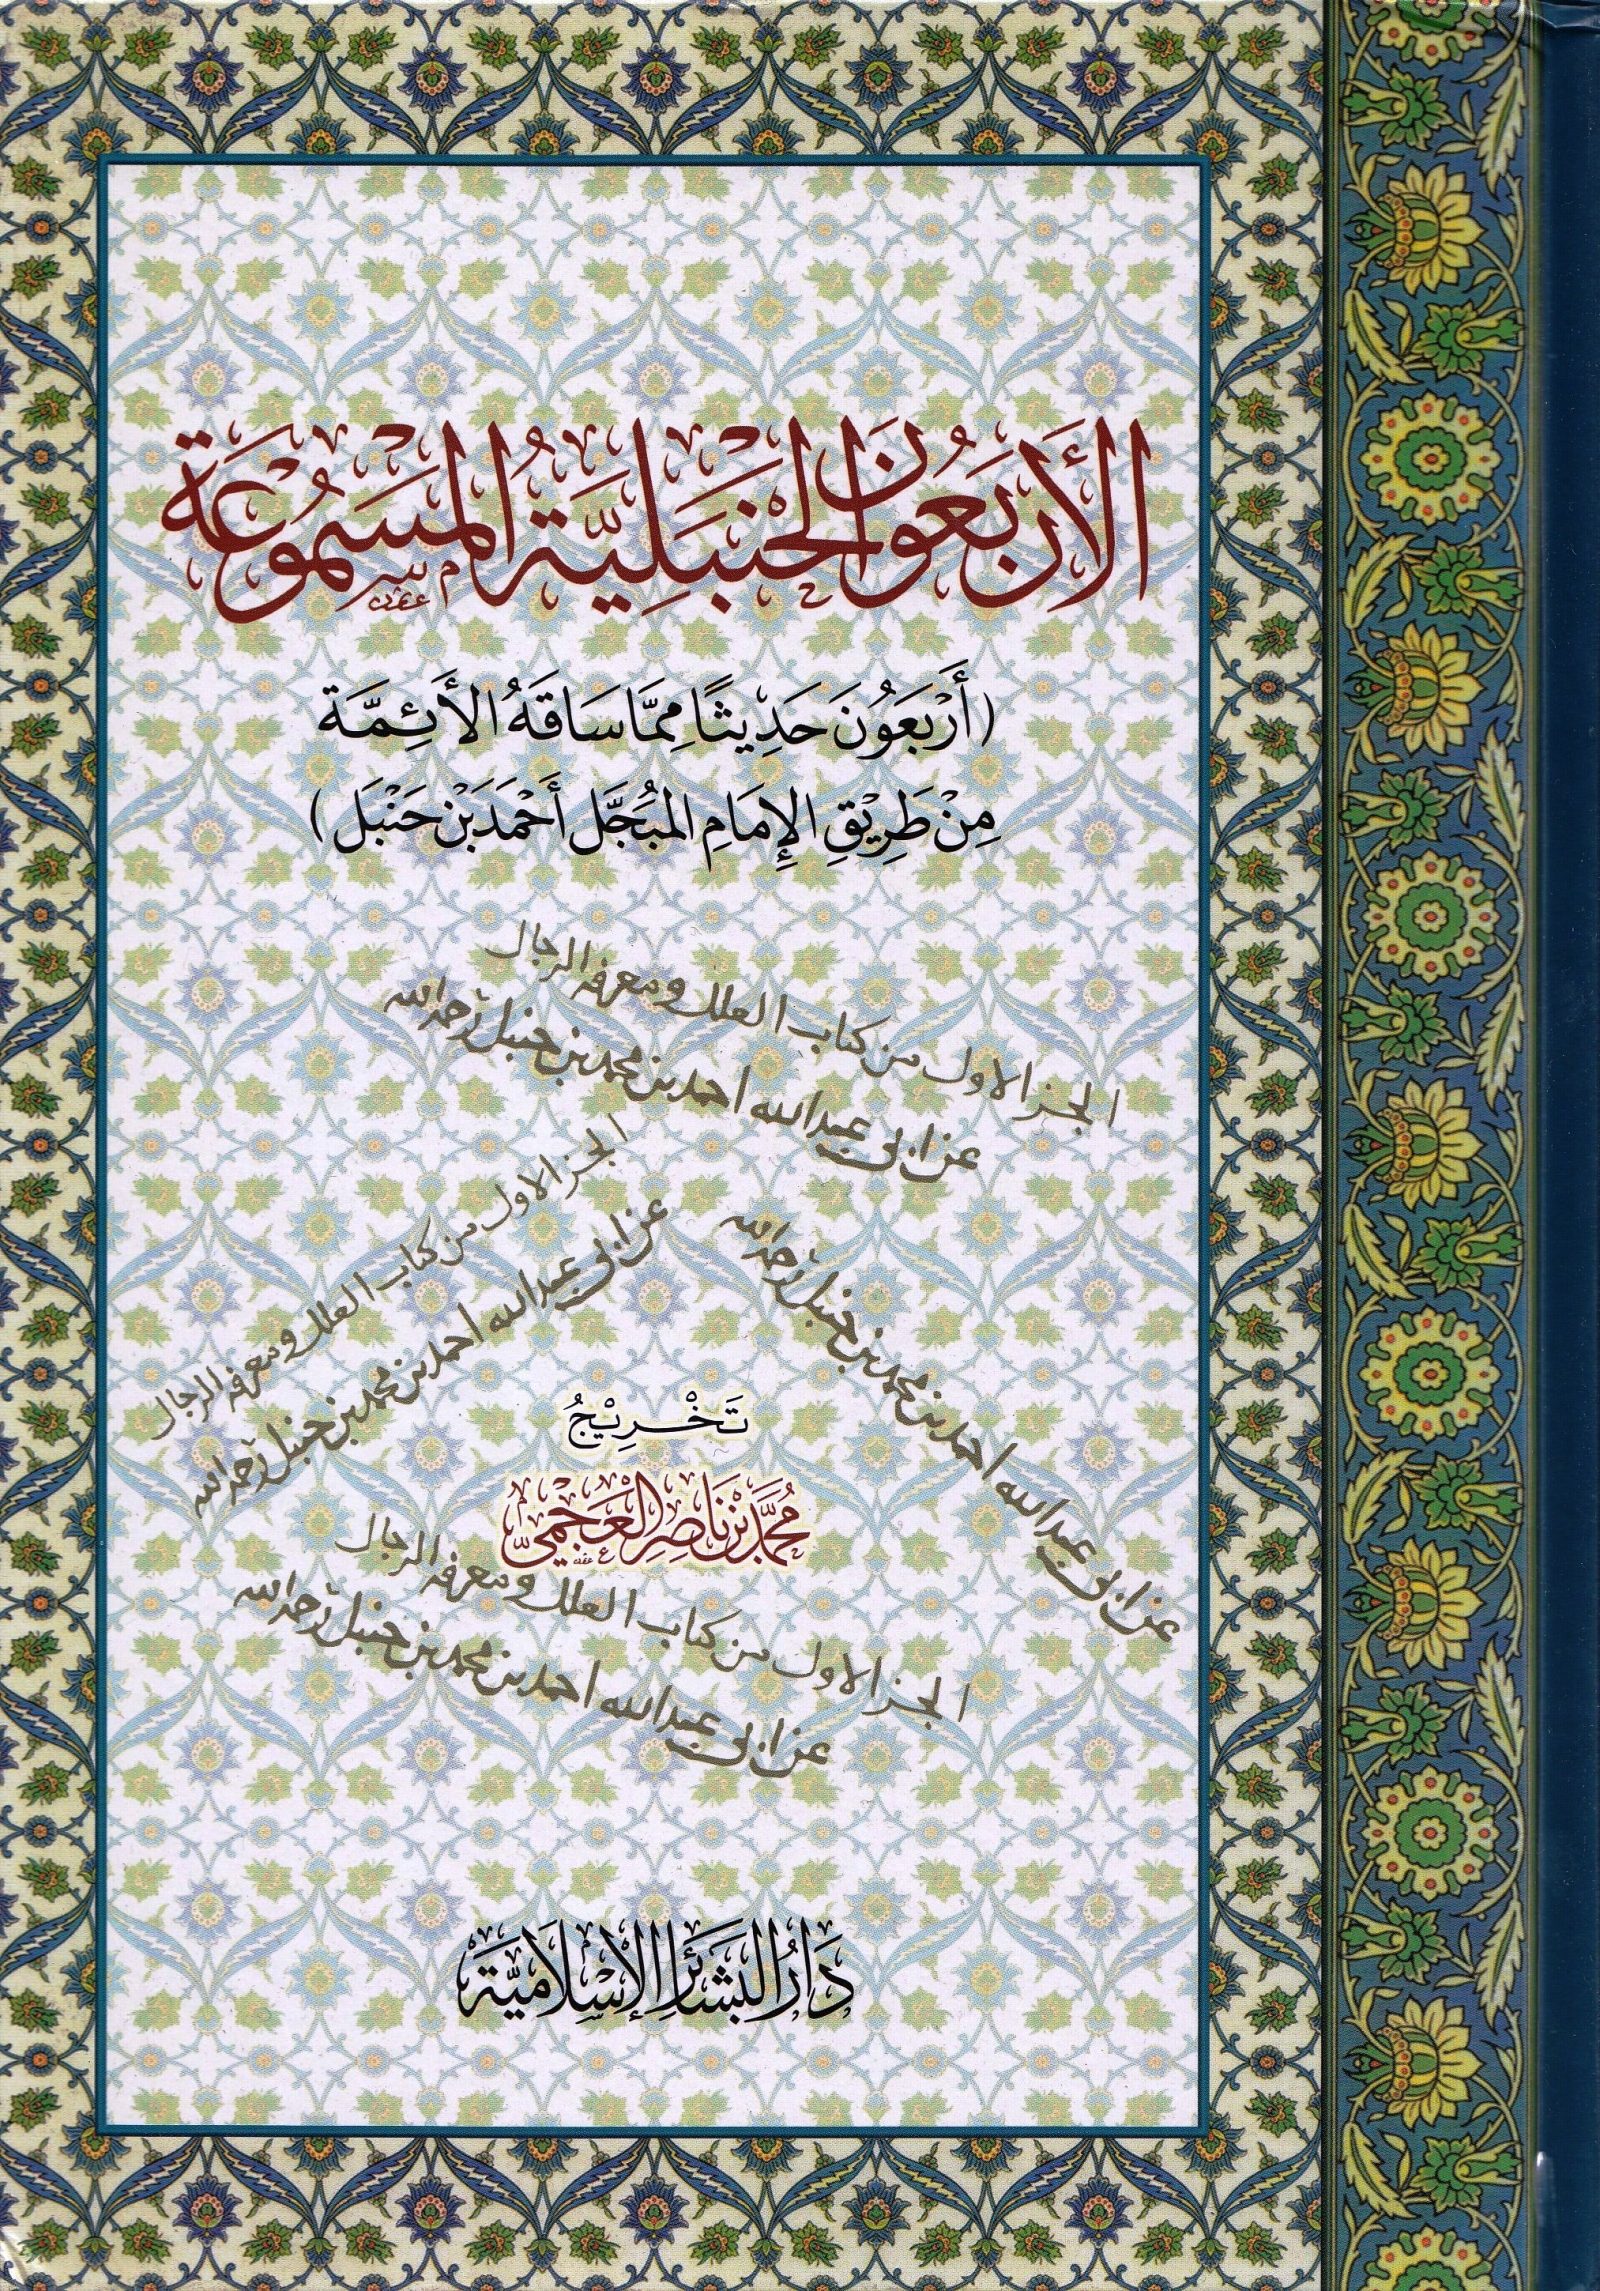 الأَرْبَعُونَ الحَنْبَلِيَّةُ المَسْمُوعَة
(أَرْبَعُونَ حَدِيثًا مِمَّا سَاقَهُ الأَئِمَّة
مِنْ طَرِيْقِ الإِمَامِ المُبَجَّل أَحْمَدَ بْن حَنْبَل)
الجز الاول من كتاب العلل ومعرفه الرجال
عن ابي عبدالله احمد بن محمد بن حنبل رحمه الله
الجز الاول من كتاب العلل ومعرفه الرجال
عن ابي عبدالله احمد بن محمد بن حنبل رحمه الله
عن ابي عبدالله احمد بن محمد بن حنبل رحمه الله
تَخْرِيْجُ
مُحَمَّد بْن نَاصِر العَجْمِيّ
الجز الاول من كتاب العلل ومعرفه الرجال
عن ابي عبدالله احمد بن محمد بن حنبل رحمه الله
دَارُ البَشَائِر الإِسْلَامِيَّة